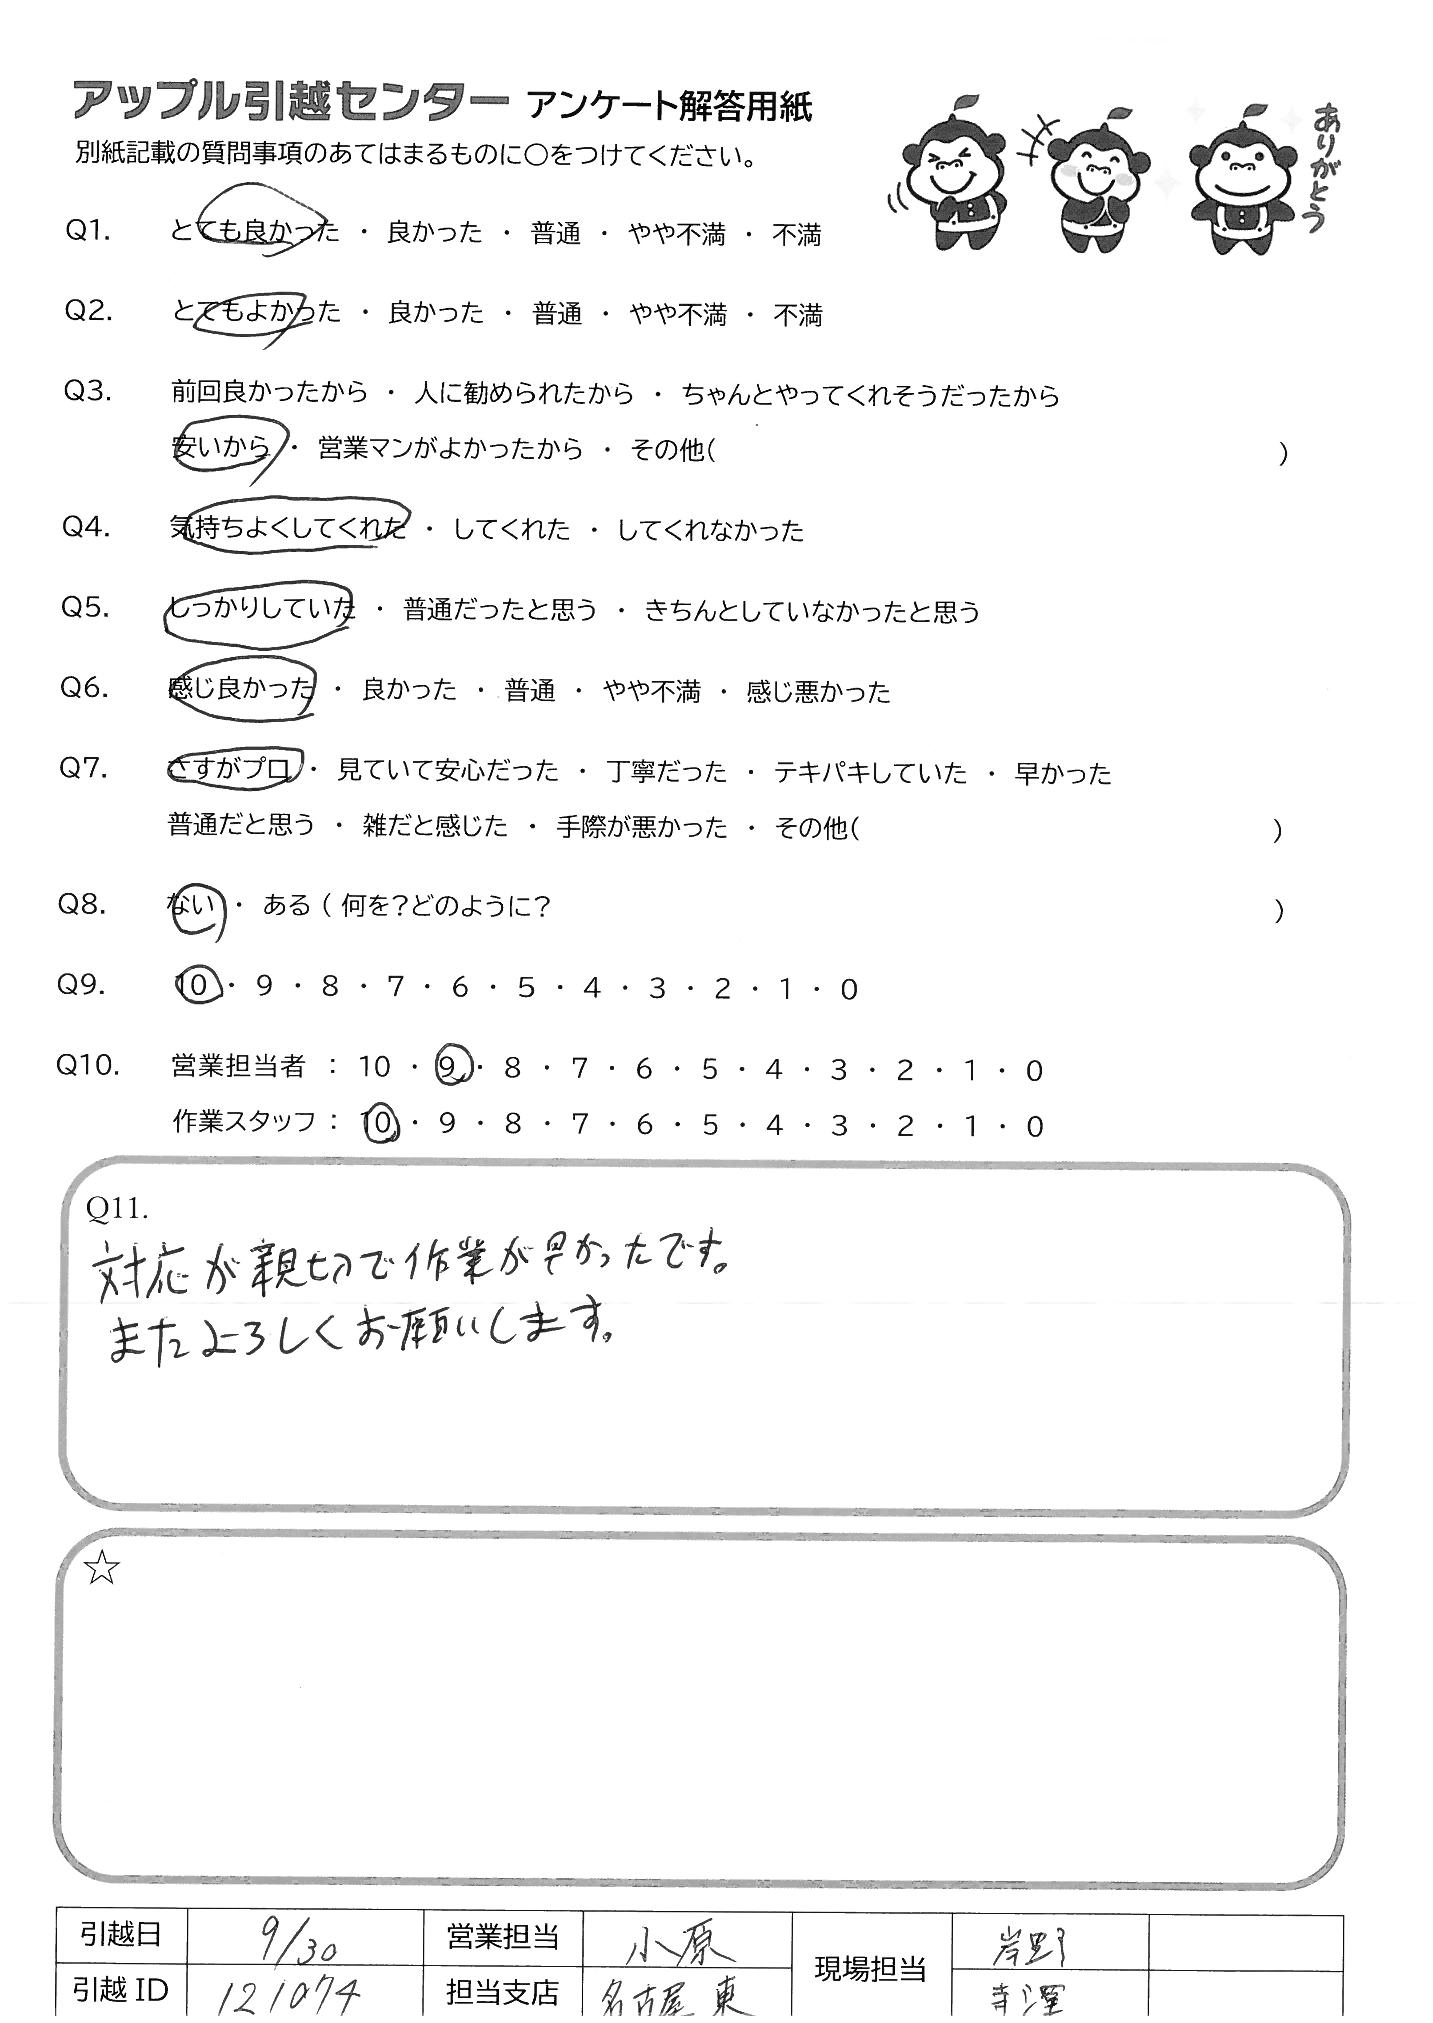 アップル引越センター アンケート解答用紙
別紙記載の質問事項のあてはまるものに○をつけてください。
ありがとう
Q1. とても良かった ・ 良かった ・ 普通 ・ やや不満 ・ 不満
Q2. とてもよかった ・ 良かった ・ 普通 ・ やや不満 ・ 不満
Q3. 前回良かったから ・ 人に勧められたから ・ ちゃんとやってくれそうだったから
安いから ・ 営業マンがよかったから ・ その他( )
Q4. 気持ちよくしてくれた ・ してくれた ・ してくれなかった
Q5. しっかりしていた ・ 普通だったと思う ・ きちんとしていなかったと思う
Q6. 感じ良かった ・ 良かった ・ 普通 ・ やや不満 ・ 感じ悪かった
Q7. さすがプロ ・ 見ていて安心だった ・ 丁寧だった ・ テキパキしていた ・ 早かった
普通だと思う ・ 雑だと感じた ・ 手際が悪かった ・ その他( )
Q8. ない ・ ある ( 何を?どのように? )
Q9. 10 ・ 9 ・ 8 ・ 7 ・ 6 ・ 5 ・ 4 ・ 3 ・ 2 ・ 1 ・ 0
Q10. 営業担当者 : 10 ・ 9 ・ 8 ・ 7 ・ 6 ・ 5 ・ 4 ・ 3 ・ 2 ・ 1 ・ 0
作業スタッフ : 10 ・ 9 ・ 8 ・ 7 ・ 6 ・ 5 ・ 4 ・ 3 ・ 2 ・ 1 ・ 0
Q11.
対応が親切で作業が早かったです。
またよろしくお願いします。
☆
引越日 9/30 営業担当 小原 現場担当 岸野
引越 ID 121074 担当支店 名古屋東 寺澤